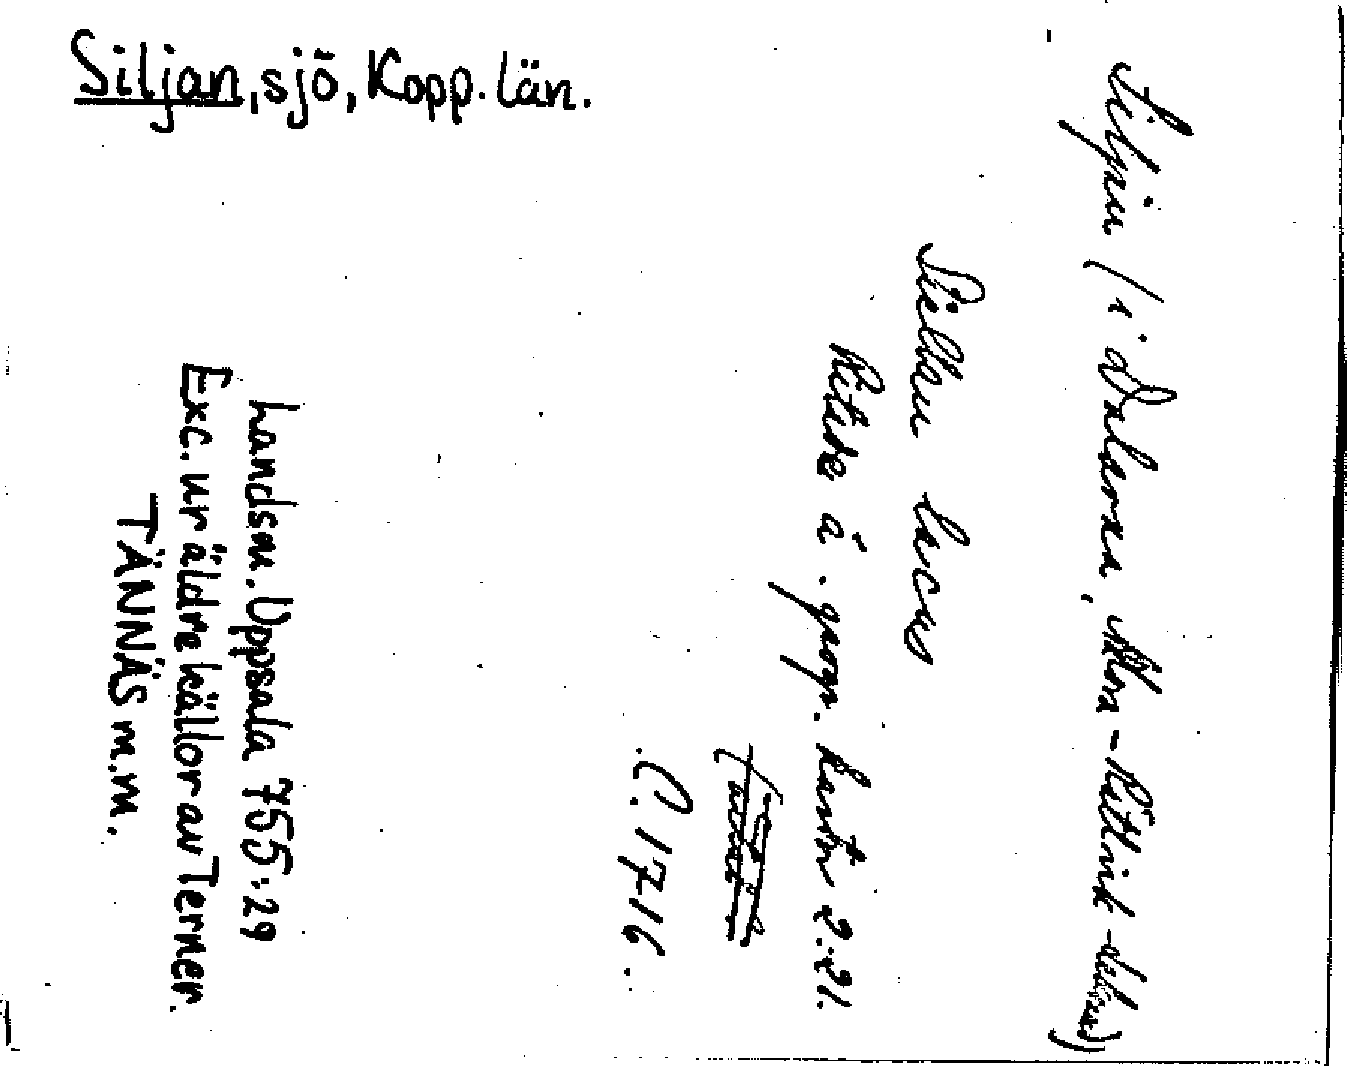 Siljan, sjö, Kopp. län.
Siljan (i Dalarna, Mora-Rättvik-
Sillien lacus
Ritade ä. geogr. kartor 2:21.
C. 1716.
Landsm. Uppsala 755:29
Exc. ur äldre källor av Terner.
TÄNNÄS m.m.